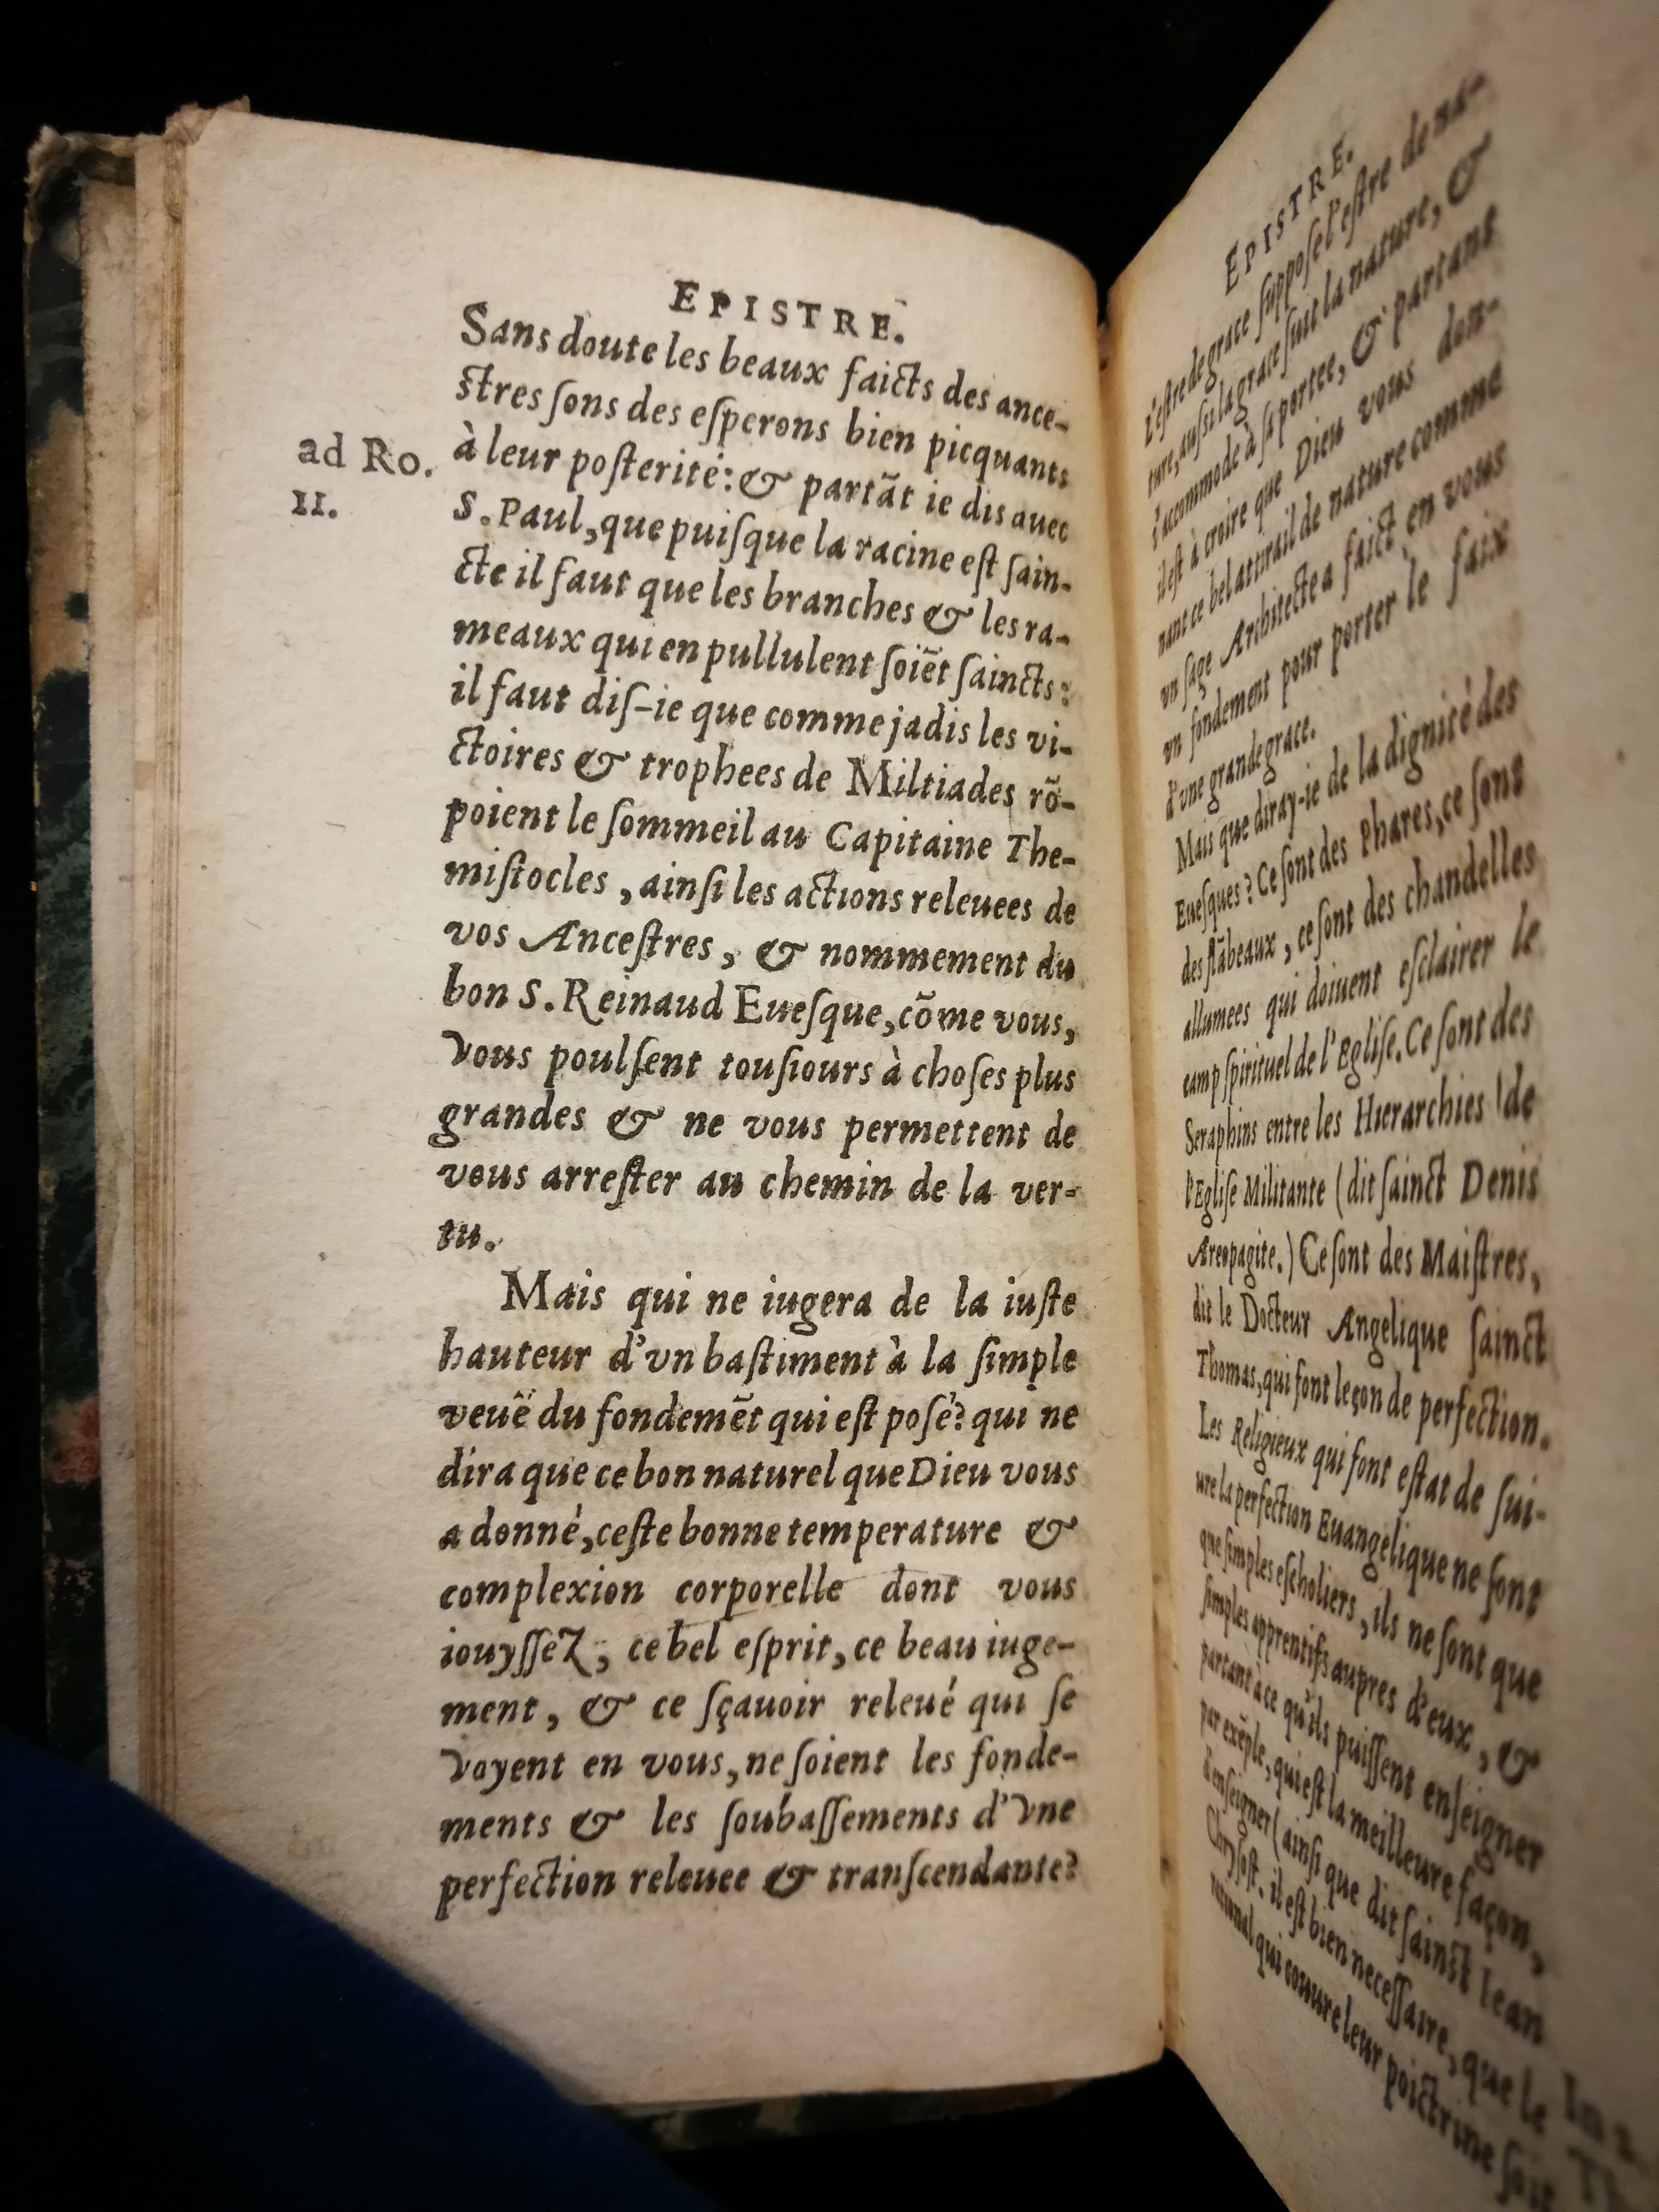 EPISTRE.
Sans doute les beaux faicts des ance-
ſtres ſons des eſperons bien picquants
à leur poſterité: & partāt ie dis auec
ad Ro.
11.
S. Paul, que puiſque la racine eſt ſain-
cte il faut que les branches & les ra-
meaux qui en pullulent ſoiēt ſaincts:
il faut diſ-ie que comme jadis les vi-
ctoires & trophees de Miltiades rō-
poient le ſommeil au Capitaine The-
miſtocles, ainſi les actions releuees de
vos Anceſtres, & nommement du
bon S. Reinaud Eueſque, cōme vous,
vous poulſent touſiours à choſes plus
grandes & ne vous permettent de
vous arreſter au chemin de la ver-
tu.
Mais qui ne iugera de la iuſte
hauteur d'vn baſtiment à la ſimple
veuë du fondemēt qui eſt poſé? qui ne
dira que ce bon naturel que Dieu vous
a donné, ceſte bonne temperature &
complexion corporelle dont vous
iouyſſez, ce bel eſprit, ce beau iuge-
ment, & ce ſçauoir releué qui ſe
voyent en vous, ne ſoient les fonde-
ments & les ſoubaſſements d'vne
perfection releuee & tranſcendante?
EPISTRE.
L'eſtre de grace ſuppoſe l'eſtre de na-
ture, auſsi la grace ſuit la nature, &
s'accommode à ſa portee, & partant
il eſt à croire que Dieu vous don-
nant ce bel attirail de nature comme
vn ſage Architecte a faict en vous
vn fondement pour porter le faix
d'vne grande grace.
Mais que diray-ie de la dignité des
Eueſques? Ce ſont des Phares, ce ſont
des flābeaux, ce ſont des chandelles
allumees qui doiuent eſclairer le
camp ſpirituel de l'Egliſe. Ce ſont des
Seraphins entre les Hierarchies de
l'Egliſe Militante (dit ſainct Denis
Areopagite.) Ce ſont des Maiſtres,
dit le Docteur Angelique ſainct
Thomas, qui font leçon de perfection.
Les Religieux qui font eſtat de ſui-
ure la perfection Euangelique ne ſont
que ſimples eſcholiers, ils ne ſont que
ſimples apprentifs aupres d'eux, &
partant à ce qu'ils puiſſent enſeigner
par exēple, qui eſt la meilleure façon,
d'enſeigner (ainſi que dit ſainct Iean
Chryſoſt. il eſt bien neceſſaire, que le
rational qui couure leur poictrine ſoit